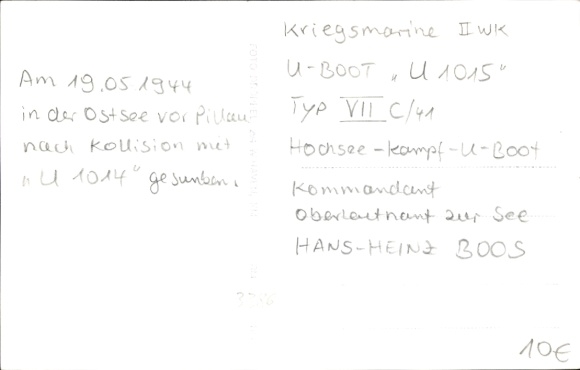 Am 19.05 1944
in der Ostsee vor Pillau
nach Kollision mit
„U 1014“ gesunken.
Kriegsmarine II WK
U-BOOT „U 1015“
Typ VII C/41
Hochsee-Kampf-U-Boot
Kommandant
Oberleutnant zur See
HANS-HEINZ BOOS
10€